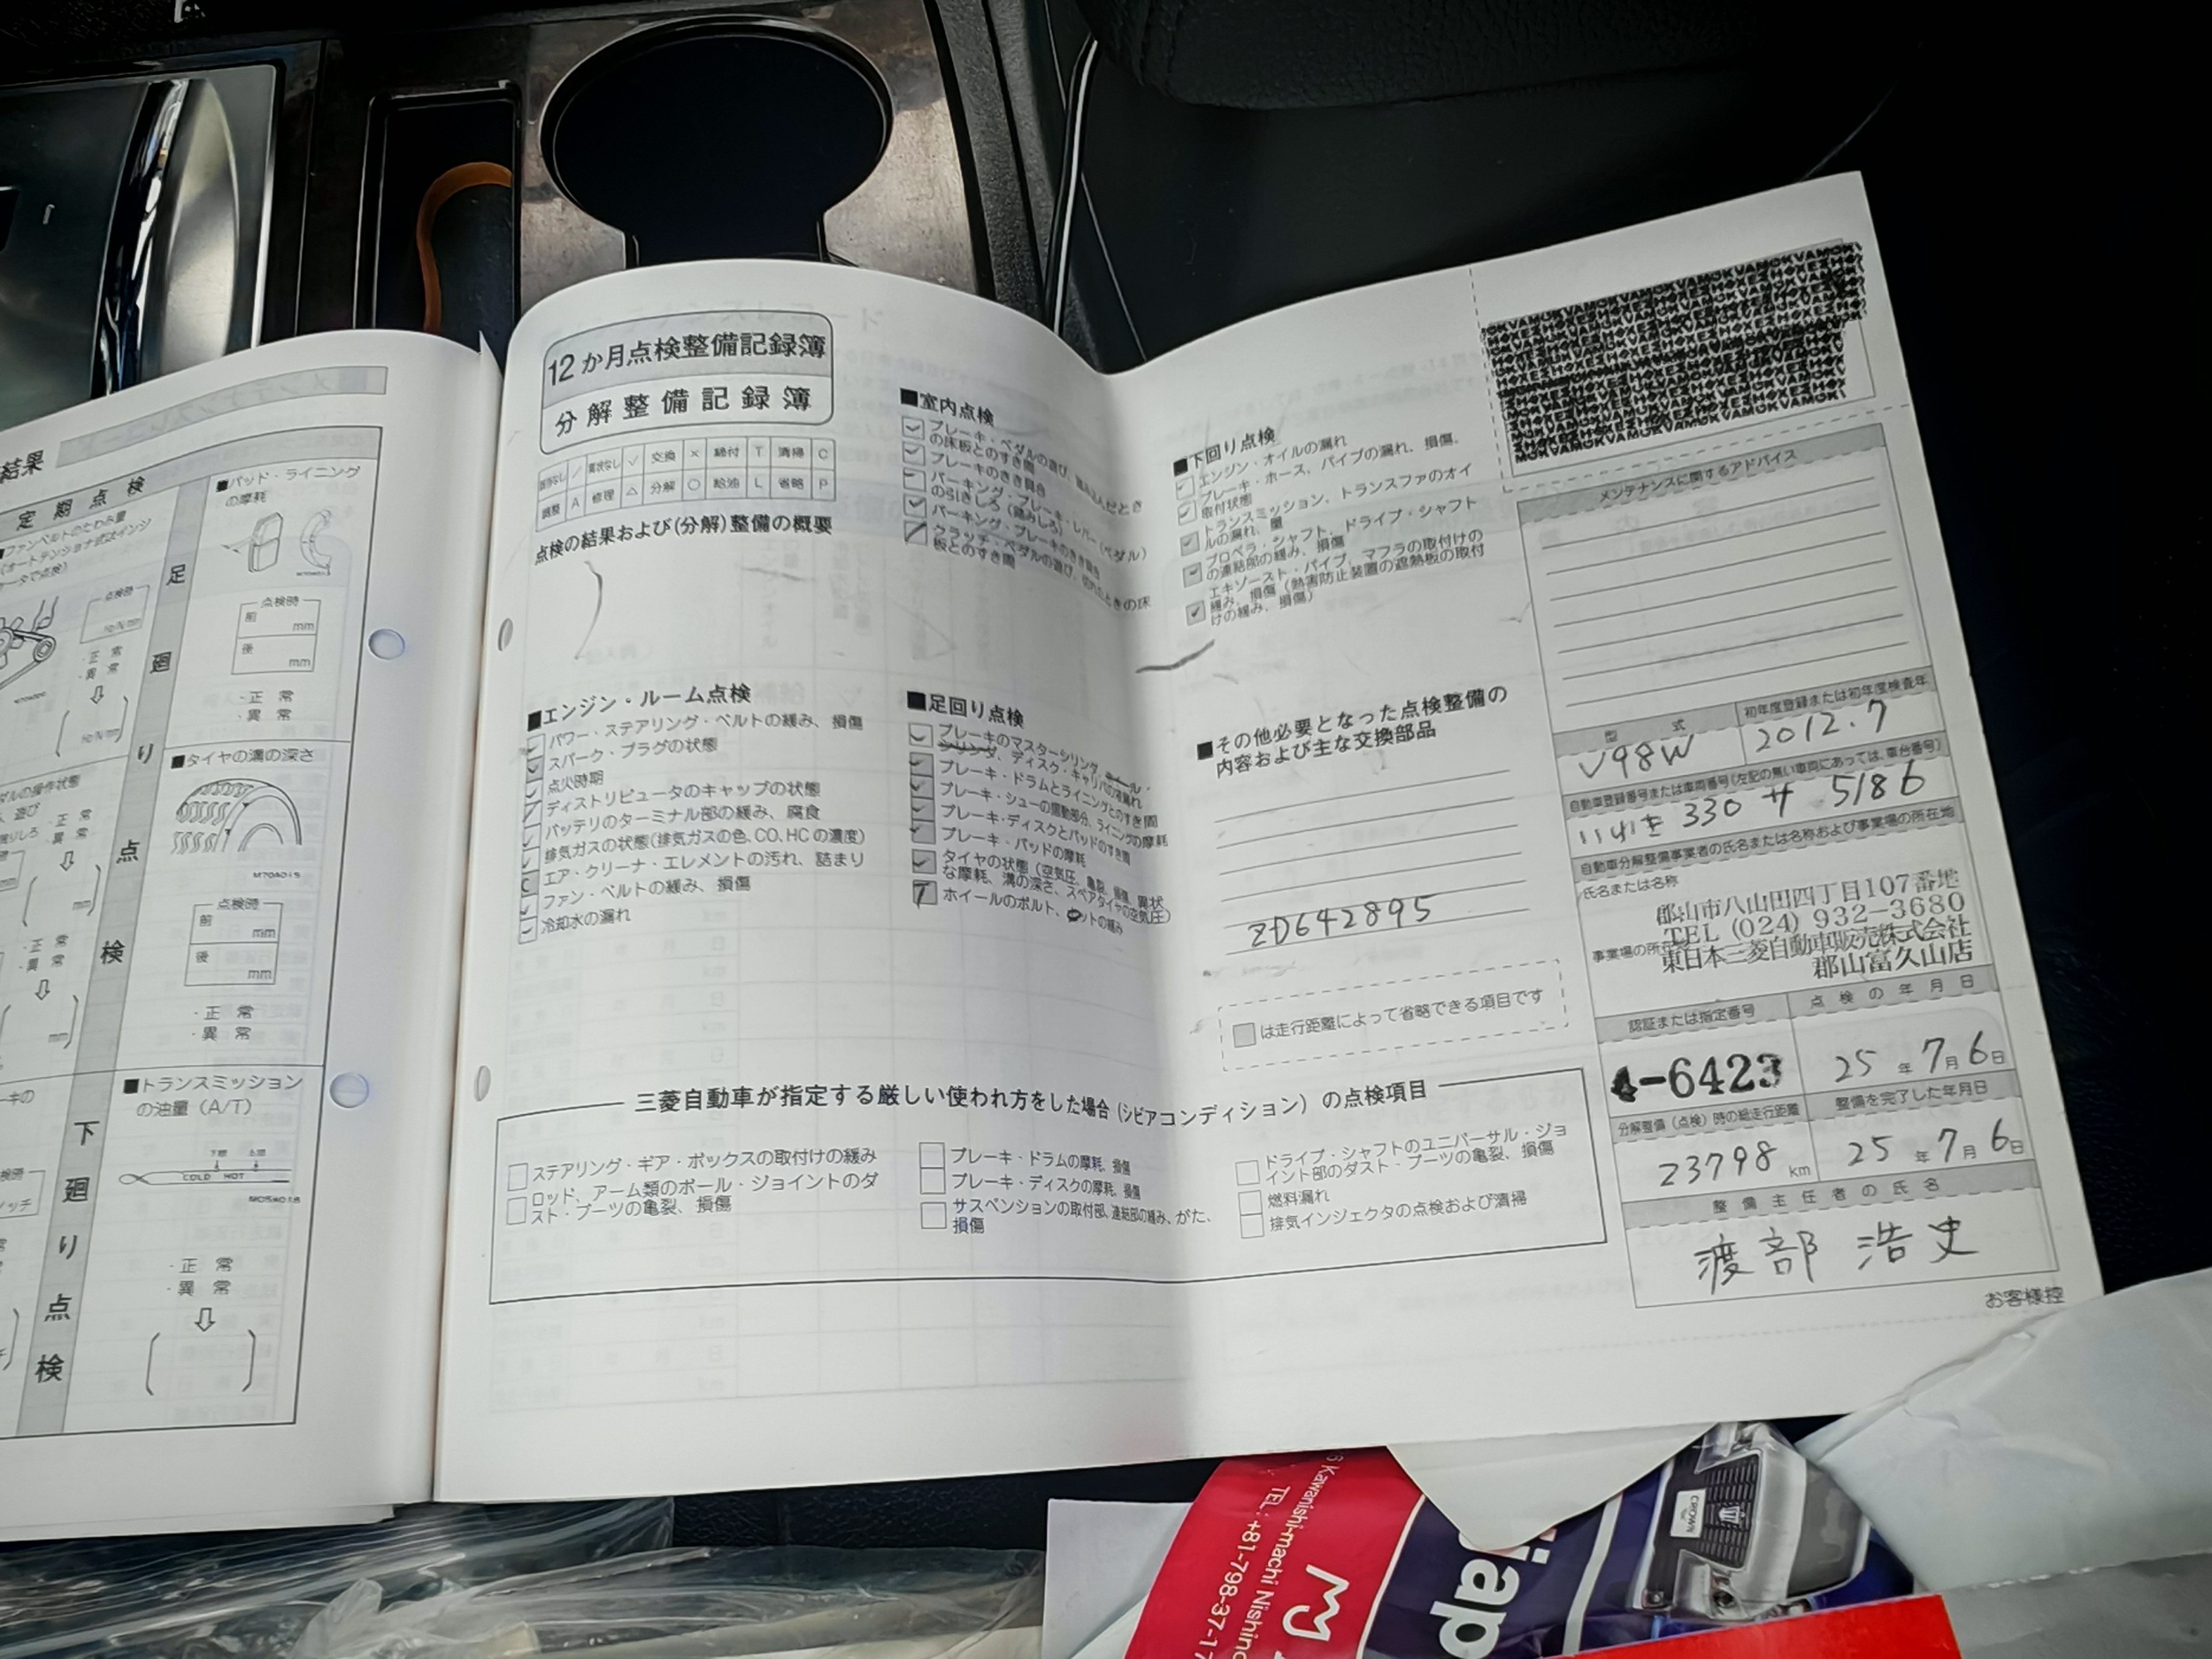 結果
定期点検
ファンベルトのたわみ量
(オートテンショナ式はインジ
ケータで点検)
点検時
・正 常
・異 常
足廻り点検
■パッド・ライニング
の摩耗
点検時
前 mm
後 mm
・正 常
・異 常
■タイヤの溝の深さ
M70A015
点検時
前 mm
後 mm
・正 常
・異 常
下廻り点検
■トランスミッション
の油量(A/T)
COLD HOT
・正 常
・異 常
12か月点検整備記録簿
分解整備記録簿
交換 × 締付 T 清掃 C
調整 A 修理 △ 分解 ○ 給油 L 省略 P
点検の結果および(分解)整備の概要
■エンジン・ルーム点検
パワー・ステアリング・ベルトの緩み、損傷
スパーク・プラグの状態
点火時期
ディストリビュータのキャップの状態
バッテリのターミナル部の緩み、腐食
排気ガスの状態(排気ガスの色、CO、HCの濃度)
エア・クリーナ・エレメントの汚れ、詰まり
ファン・ベルトの緩み、損傷
冷却水の漏れ
■室内点検
ブレーキ・ペダルの遊び、踏み込んだとき
の床板とのすき間
ブレーキのきき具合
パーキング・ブレーキ・レバー(ペダル)
の引きしろ(踏みしろ)
パーキング・ブレーキのきき具合
クラッチ・ペダルの遊び、切れたときの床
板とのすき間
■足回り点検
ブレーキのマスターシリンダ、ホイール・
シリンダ、ディスク・キャリパの液漏れ
ブレーキ・ドラムとライニングとのすき間
ブレーキ・シューの摺動部分、ライニングの摩耗
ブレーキ・ディスクとパッドのすき間
ブレーキ・パッドの摩耗
タイヤの状態(空気圧、亀裂、損傷、異状
な摩耗、溝の深さ、スペアタイヤの空気圧)
ホイールのボルト、ナットの緩み
■下回り点検
エンジン・オイルの漏れ
ブレーキ・ホース、パイプの漏れ、損傷、
取付状態
トランスミッション、トランスファのオイ
ルの漏れ、量
プロペラ・シャフト、ドライブ・シャフト
の連結部の緩み、損傷
エキゾースト・パイプ、マフラの取付けの
緩み、損傷(熱害防止装置の遮熱板の取付
けの緩み、損傷)
■その他必要となった点検整備の
内容および主な交換部品
ZD642895
は走行距離によって省略できる項目です
三菱自動車が指定する厳しい使われ方をした場合(シビアコンディション)の点検項目
ステアリング・ギア・ボックスの取付けの緩み
ロッド、アーム類のボール・ジョイントのダ
スト・ブーツの亀裂、損傷
ブレーキ・ドラムの摩耗、損傷
ブレーキ・ディスクの摩耗、損傷
サスペンションの取付部、連結部の緩み、がた、
損傷
ドライブ・シャフトのユニバーサル・ジョ
イント部のダスト・ブーツの亀裂、損傷
燃料漏れ
排気インジェクタの点検および清掃
メンテナンスに関するアドバイス
型 式
V98W
初年度登録または初年度検査年
2012.7
自動車登録番号または車両番号(左記の無い車両にあっては、車台番号)
いわき 330 サ 5186
自動車分解整備事業者の氏名または名称および事業場の所在地
氏名または名称
郡山市八山田四丁目107番地
TEL (024) 932-3680
事業場の所在地
東日本三菱自動車販売株式会社
郡山富久山店
認証または指定番号
4-6423
点検の年月日
25年7月6日
分解整備(点検)時の総走行距離
23798 km
整備を完了した年月日
25年7月6日
整備主任者の氏名
渡部 浩史
お客様控
Kawanishi-machi Nishino
TEL: +81-798-37-17
CROWN